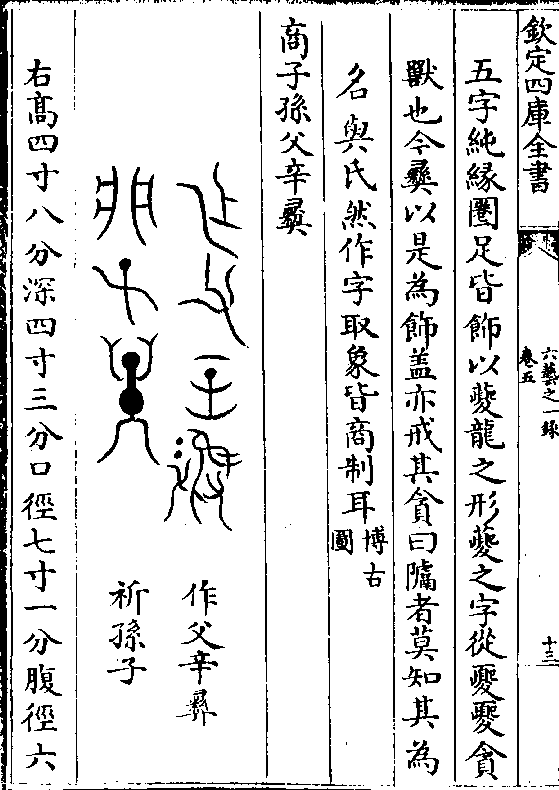 欽定四庫全書
六藝之一錄
卷五
十三
五字純緣圈足皆飾以夔龍之形夔之字從夒夒貪
獸也今彝以是為飾盖亦戒其貪曰隲者莫知其為
名與氏然作字取象皆商制耳博古
圖
商子孫父辛彝
作父辛彝
祈孫子
右髙四寸八分深四寸三分口徑七寸一分腹徑六